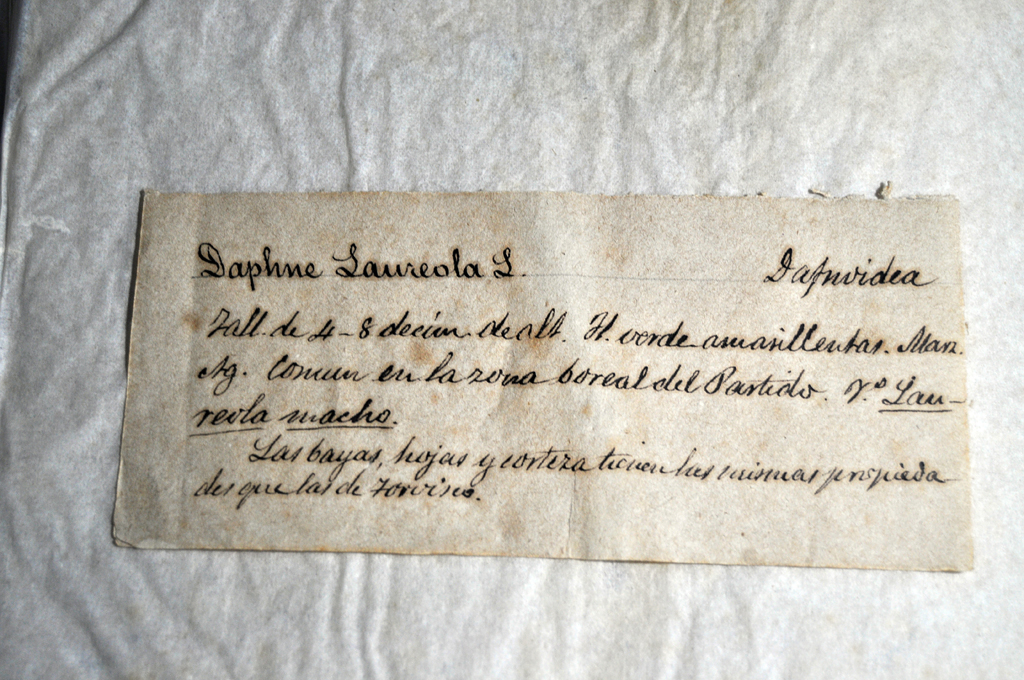 Daphne Laureola L. Dafnoidea
Tall. de 4-8 decím. de alt. Fl. verde amarillentas. Marz.
Ag. Comun en la zona boreal del Partido. V.º Lau-
reola macho.
Las bayas, hojas y corteza tienen las mismas propieda
des que las de Torvisco.